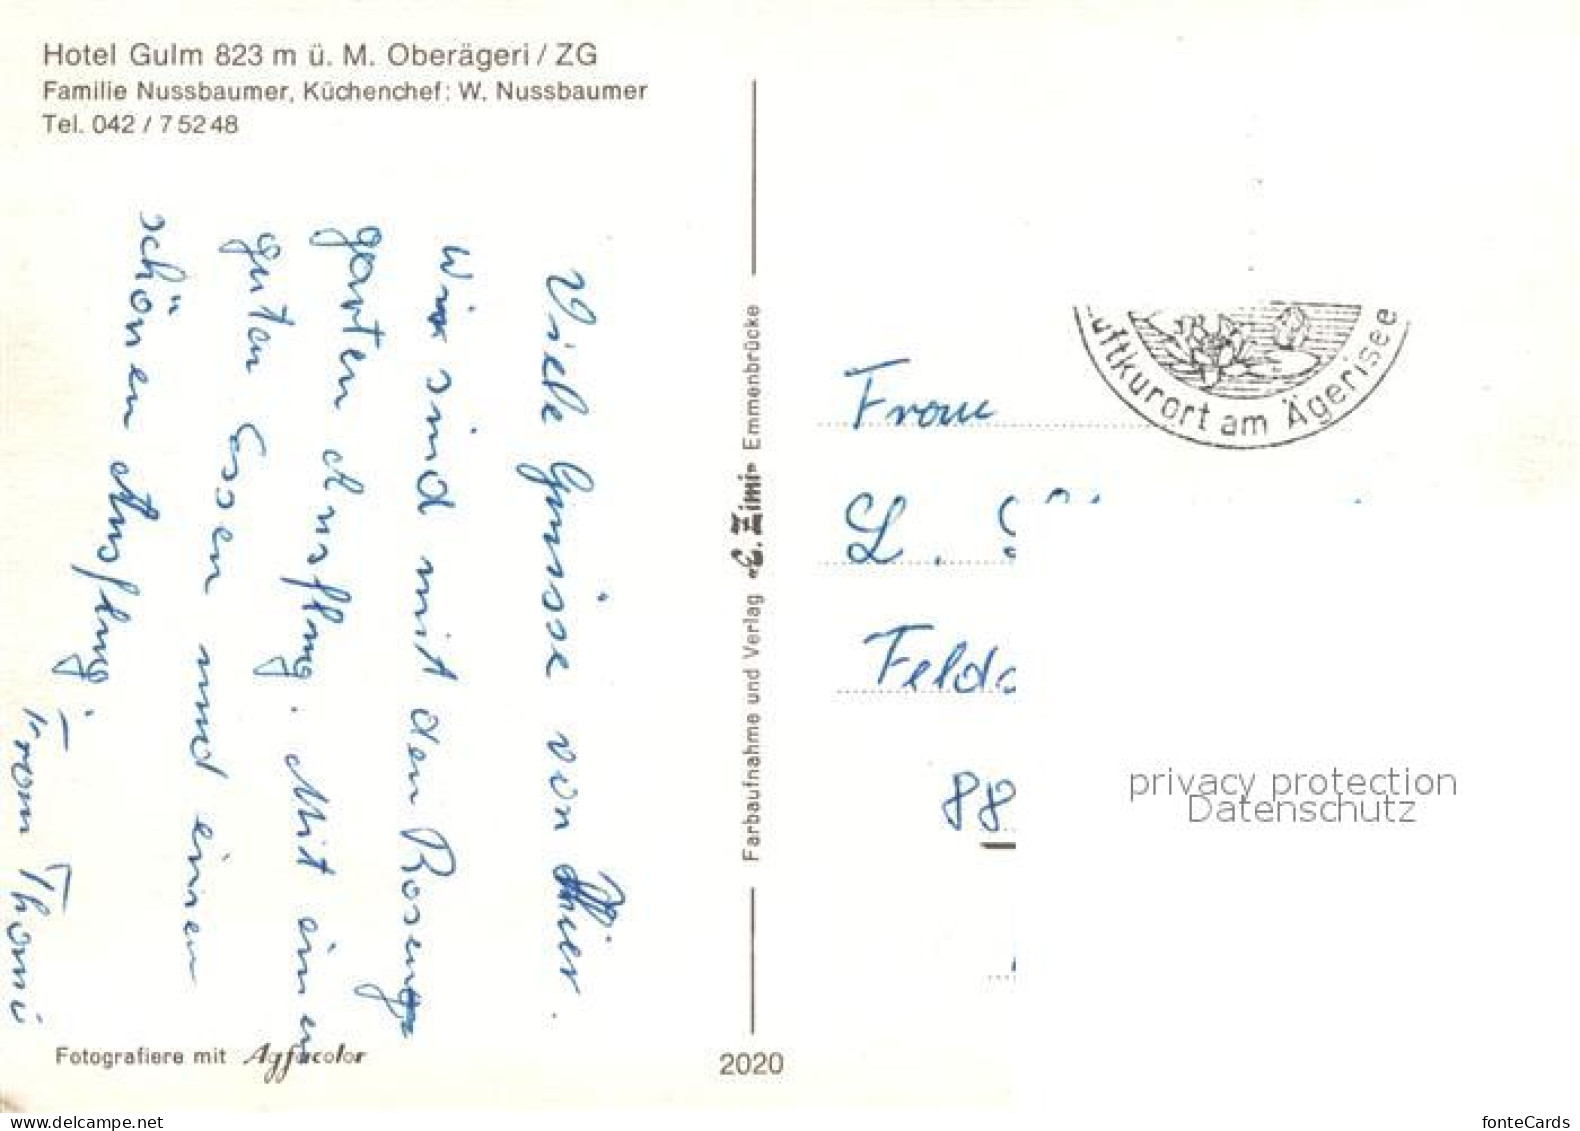 Hotel Gulm 823 m ü. M. Oberägeri / ZG
Familie Nussbaumer, Küchenchef: W. Nussbaumer
Tel. 042 / 7 52 48
Viele Grüsse von hier.
Wir sind mit den Rosen
garten Ausflug. Mit einen
guten Essen und einen
schönen Ausflug.
Frau Thomi
Fotografiere mit Agfacolor
Farbaufnahme und Verlag «E. Zimi» Emmenbrücke
2020
uftkurort am Ägerisee
Frau
L.
Feld
88
privacy protection
Datenschutz
www.delcampe.net
fonteCards